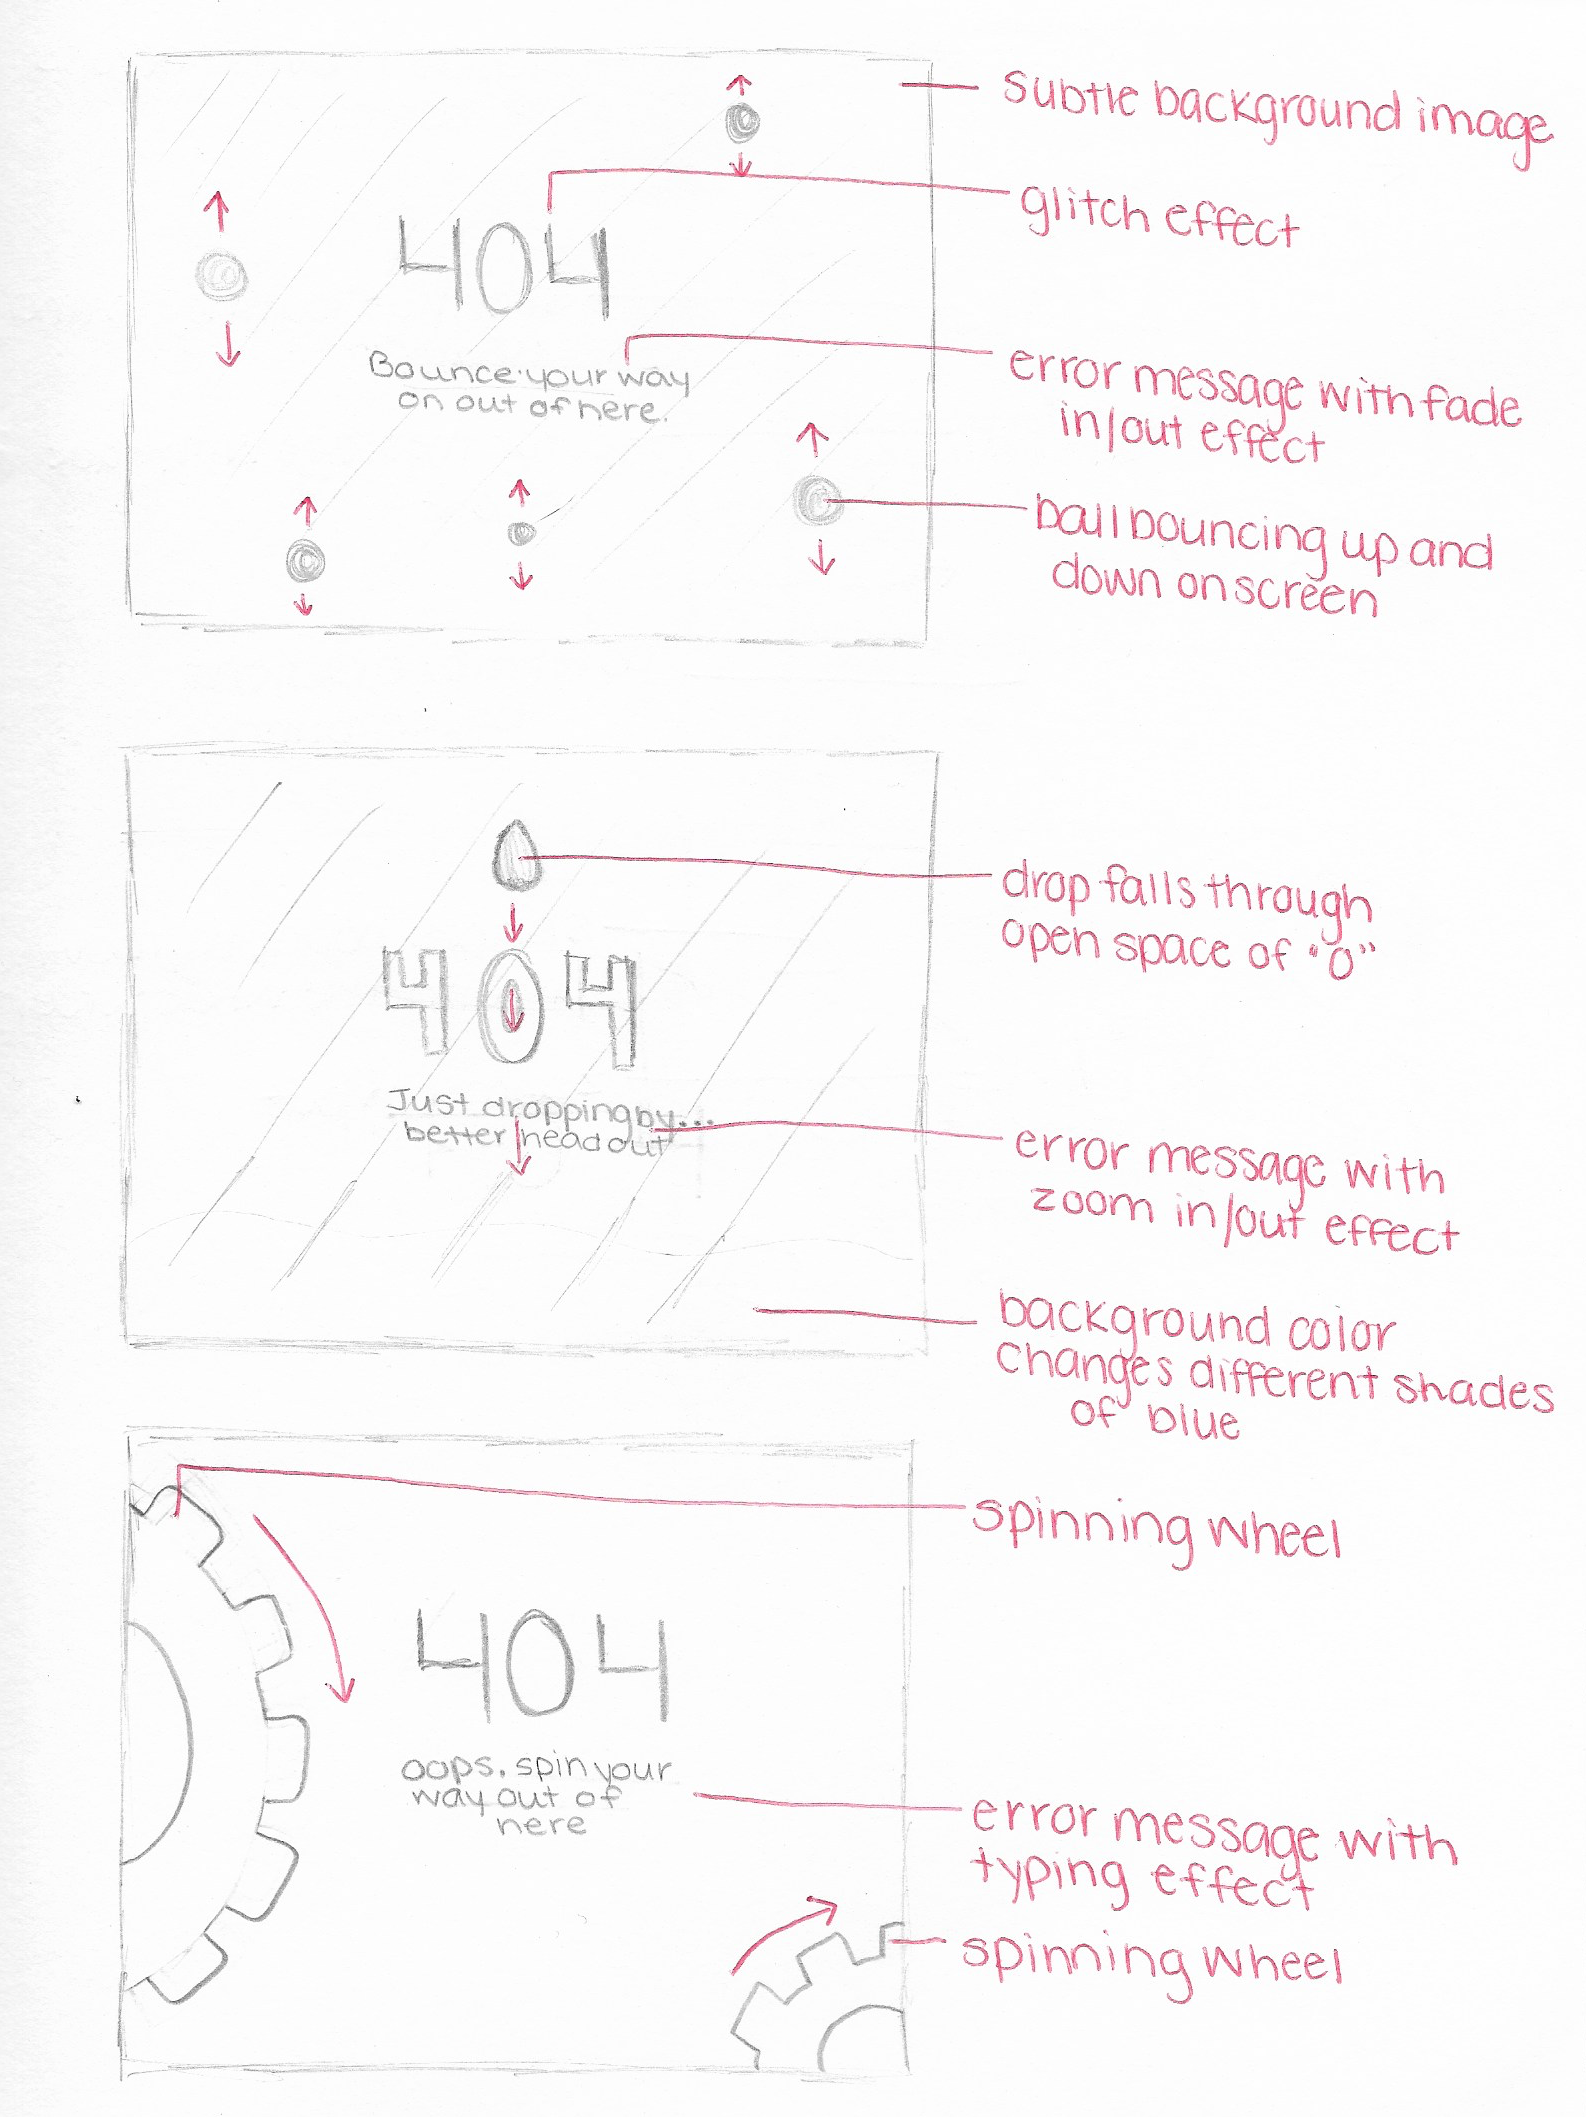 subtle background image
glitch effect
404
Bounce your way
on out of here.
error message with fade
in/out effect
ball bouncing up and
down on screen
drop falls through
open space of "0"
404
Just dropping by...
better head out
error message with
zoom in/out effect
background color
changes different shades
of blue
spinning wheel
404
oops, spin your
way out of
here
error message with
typing effect
spinning wheel